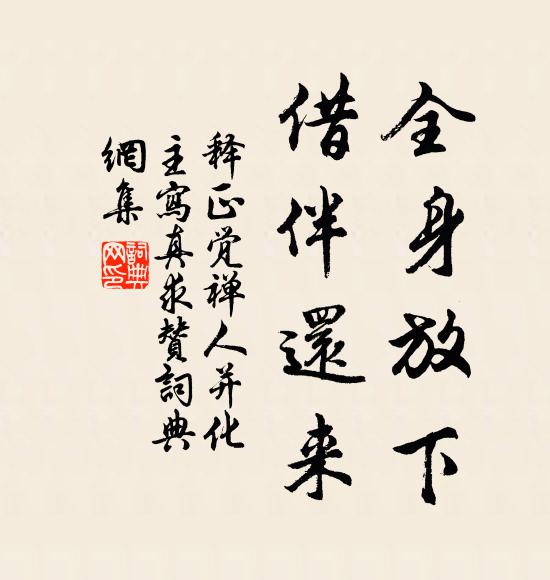 全身放下
借伴還来
释正觉禅人并化
主寫真求贊詞典
網集
詞典
网印